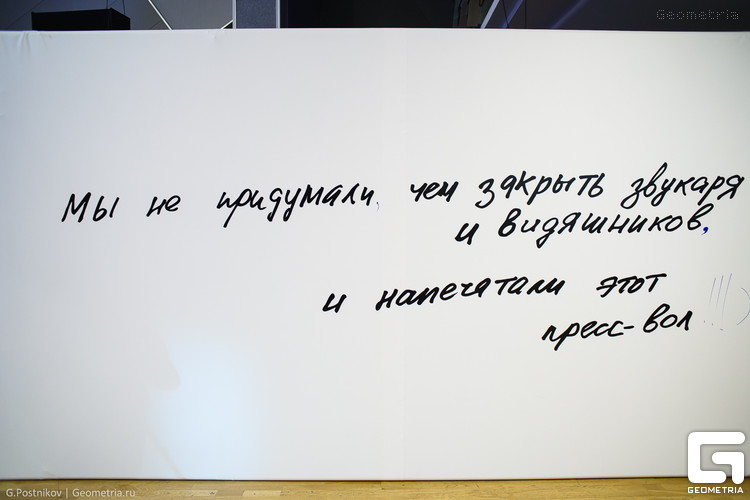 Geometria
Мы не придумали, чем закрыть звукаря
и видяшников,
и напечатали этот
пресс-вол !!!)
G.Postnikov | Geometria.ru
GEOMETRIA